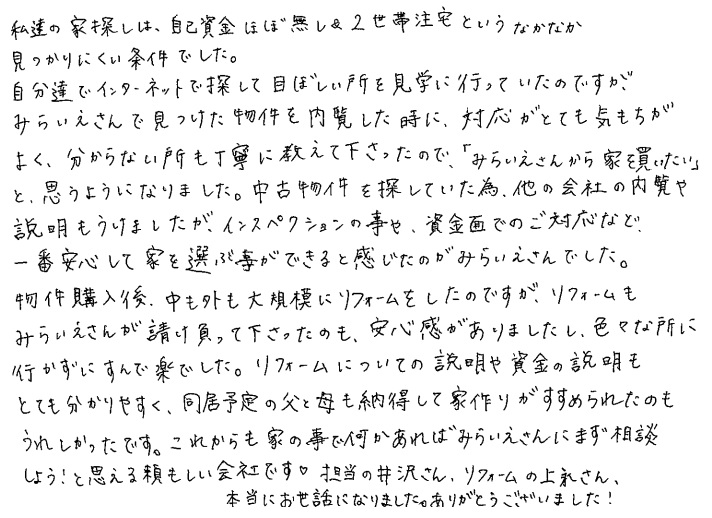 私達の家探しは、自己資金ほぼ無し&2世帯注宅というなかなか
見つかりにくい条件でした。
自分達でインターネットで探して目ぼしい所を見学に行っていたのですが、
みらいえさんで見つけた物件を内覧した時に、対応がとても気もちが
よく、分からない所も丁寧に教えて下さったので、「みらいえさんから家を買いたい」
と、思うようになりました。中古物件を探していた為、他の会社の内覧や
説明もうけましたが、インスペクションの事や、資金面でのご対応など、
一番安心して家を選ぶ事ができると感じたのがみらいえさんでした。
物件購入後、中も外も大規模にリフォームをしたのですが、リフォームも
みらいえさんが請け負って下さったのも、安心感がありましたし、色々な所に
行かずにすんで楽でした。リフォームについての説明や資金の説明も
とても分かりやすく、同居予定の父と母も納得して家作りがすすめられたのも
うれしかったです。これからも家の事で何かあればみらいえさんにまず相談
しよう!と思える頼もしい会社です♡担当の井沢さん、リフォームの上永さん、
本当にお世話になりました。ありがとうございました!